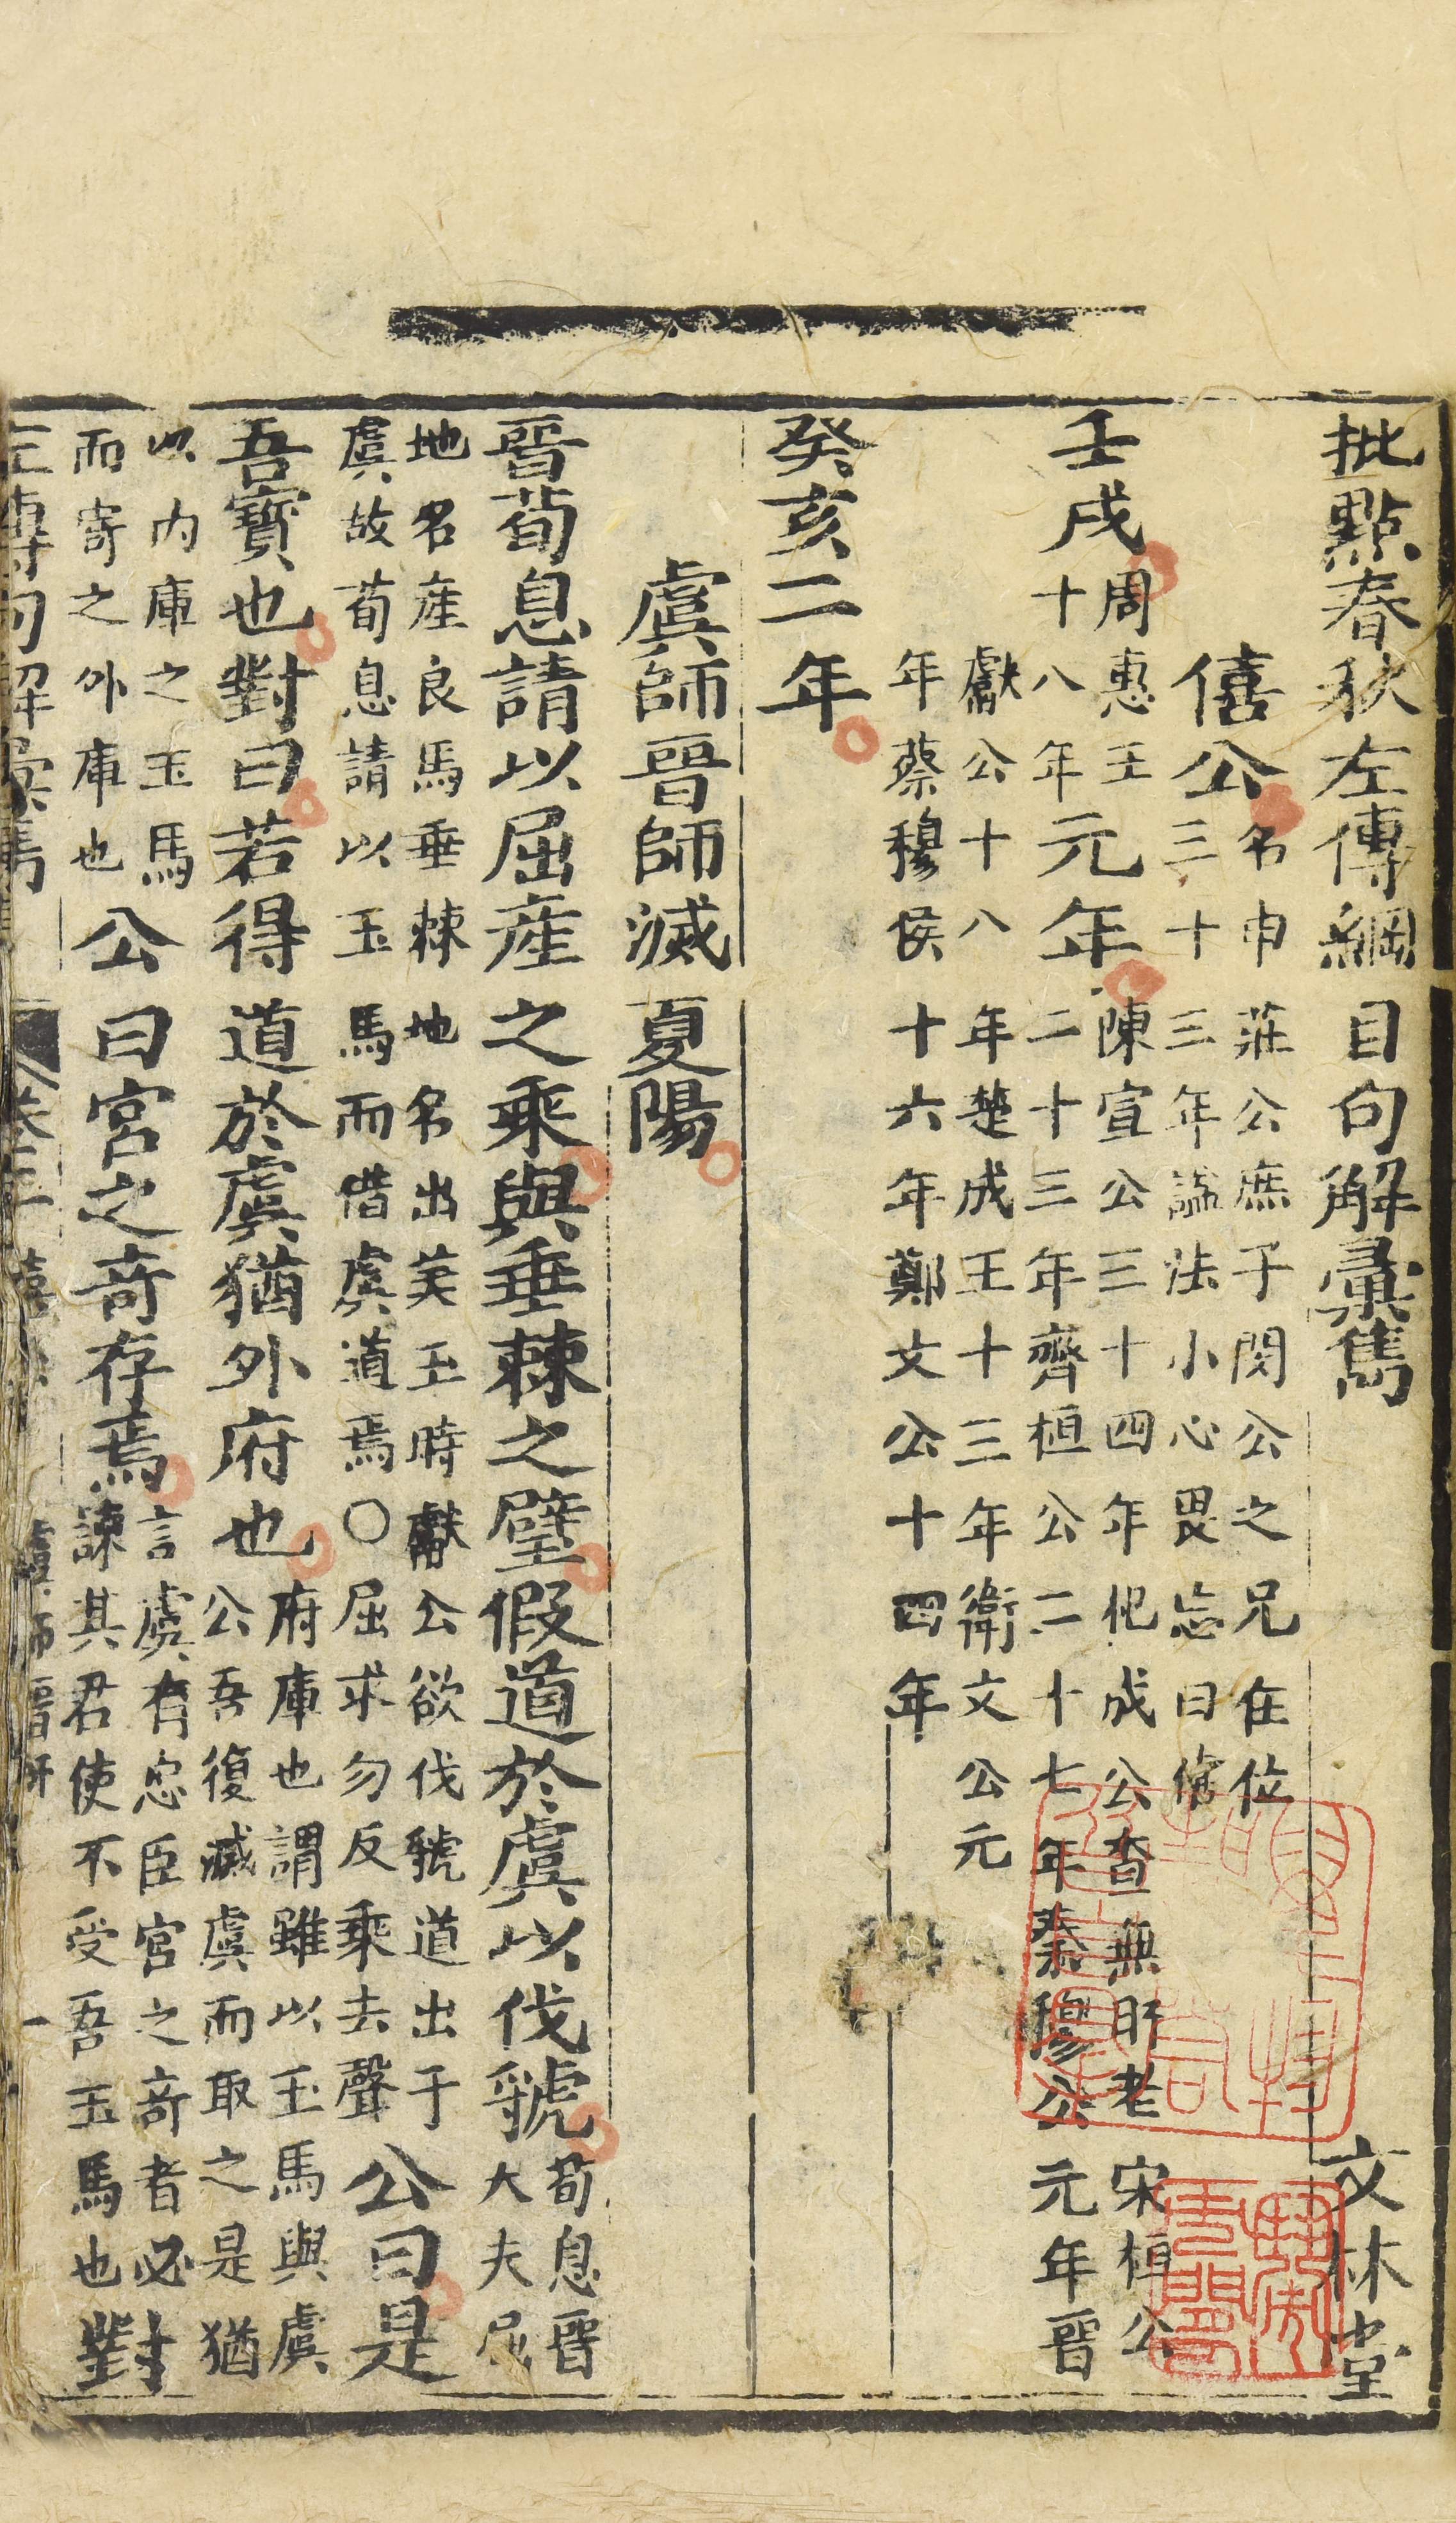 批點春秋左傳綱目句解彙雋 文林堂
僖公 名申莊公庶子閔公之兄在位
三十三年謚法小心畏忌曰僖
壬戌 周惠王 元年 陳宣公三十四年杞成公查無所老 宋桓公
十八年 二十三年齊桓公二十七年秦穆公元年晉
獻公十八年楚成王十三年衛文公元
年蔡穆侯十六年鄭文公十四年
癸亥二年
虞師晉師滅夏陽
晉荀息請以屈產之乘與垂棘之璧假道於虞以伐虢 荀息晉
大夫屈
地名產良馬垂棘地名出美玉時獻公欲伐虢道出于
虞故荀息請以玉馬而借虞道焉〇屈求勿反乘去聲 公曰是
吾寶也對曰若得道於虞猶外府也 府庫也謂雖以玉馬與虞
公吾復滅虞而取之是猶
以内庫之玉馬
而寄之外庫也 公曰宮之奇存焉 言虞有忠臣宮之奇者必
諫其君使不受吾玉馬也 對
左傳句解彙雋 卷三 僖公 虞師晉師 一